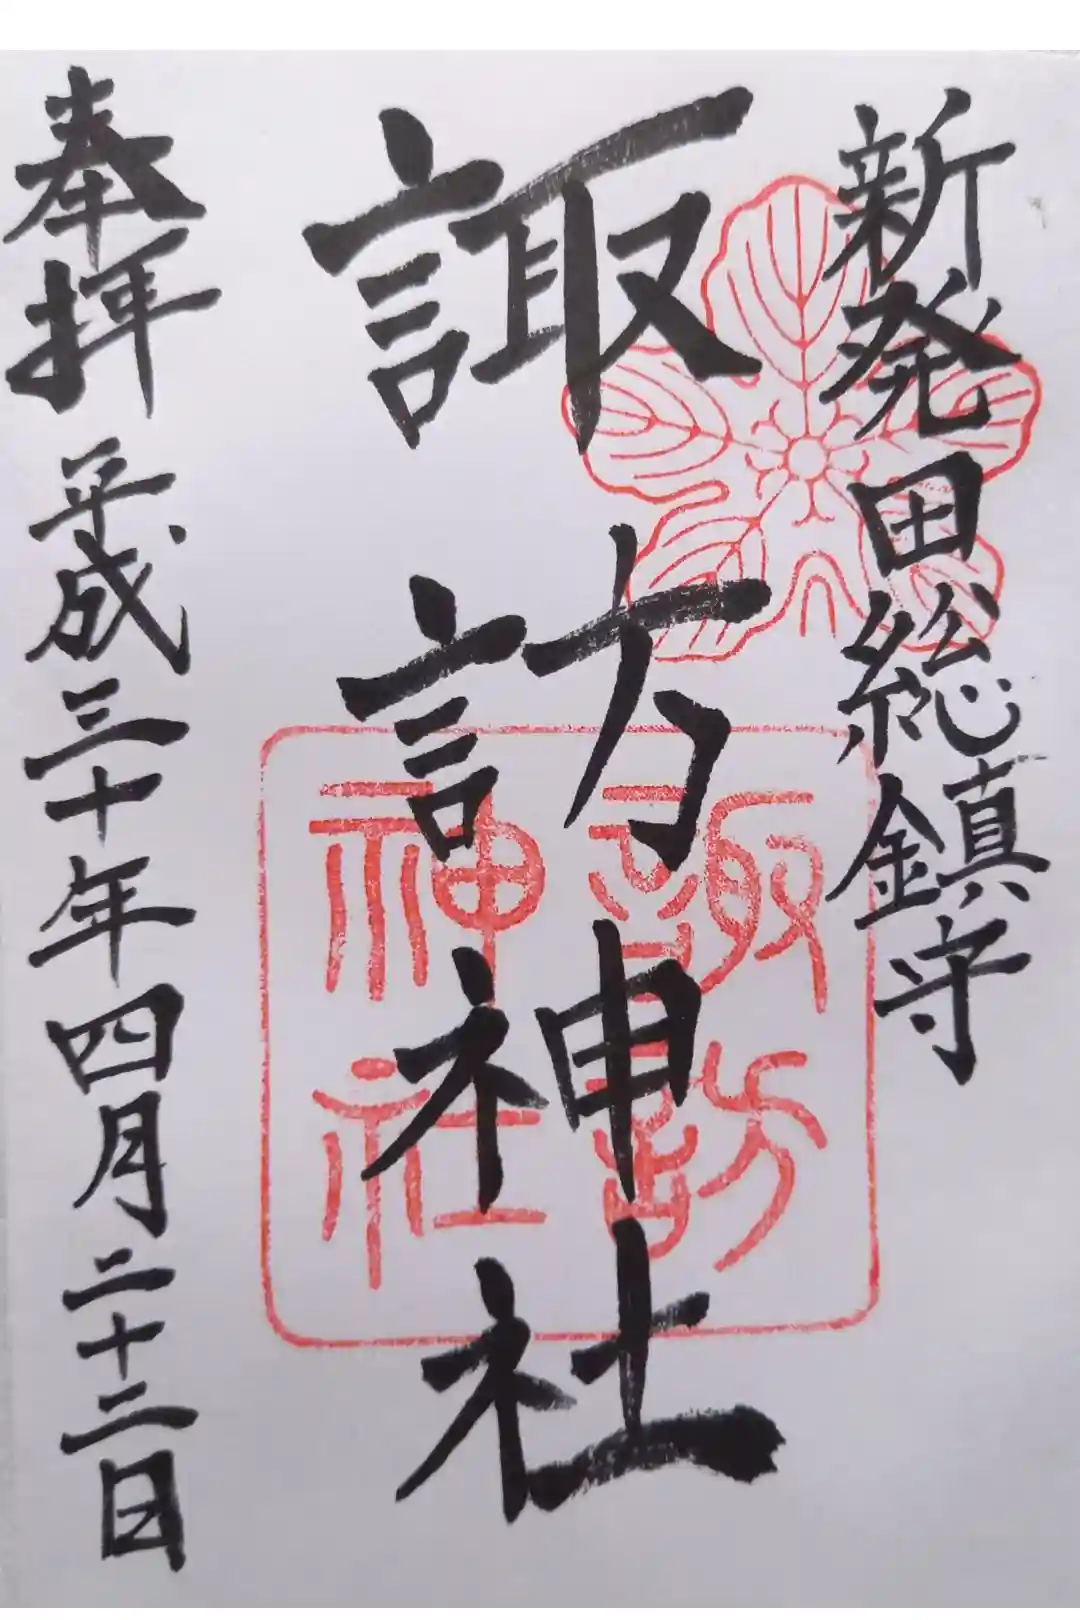 新発田総鎮守
諏訪神社
諏訪神社
奉拝 平成三十年四月二十二日